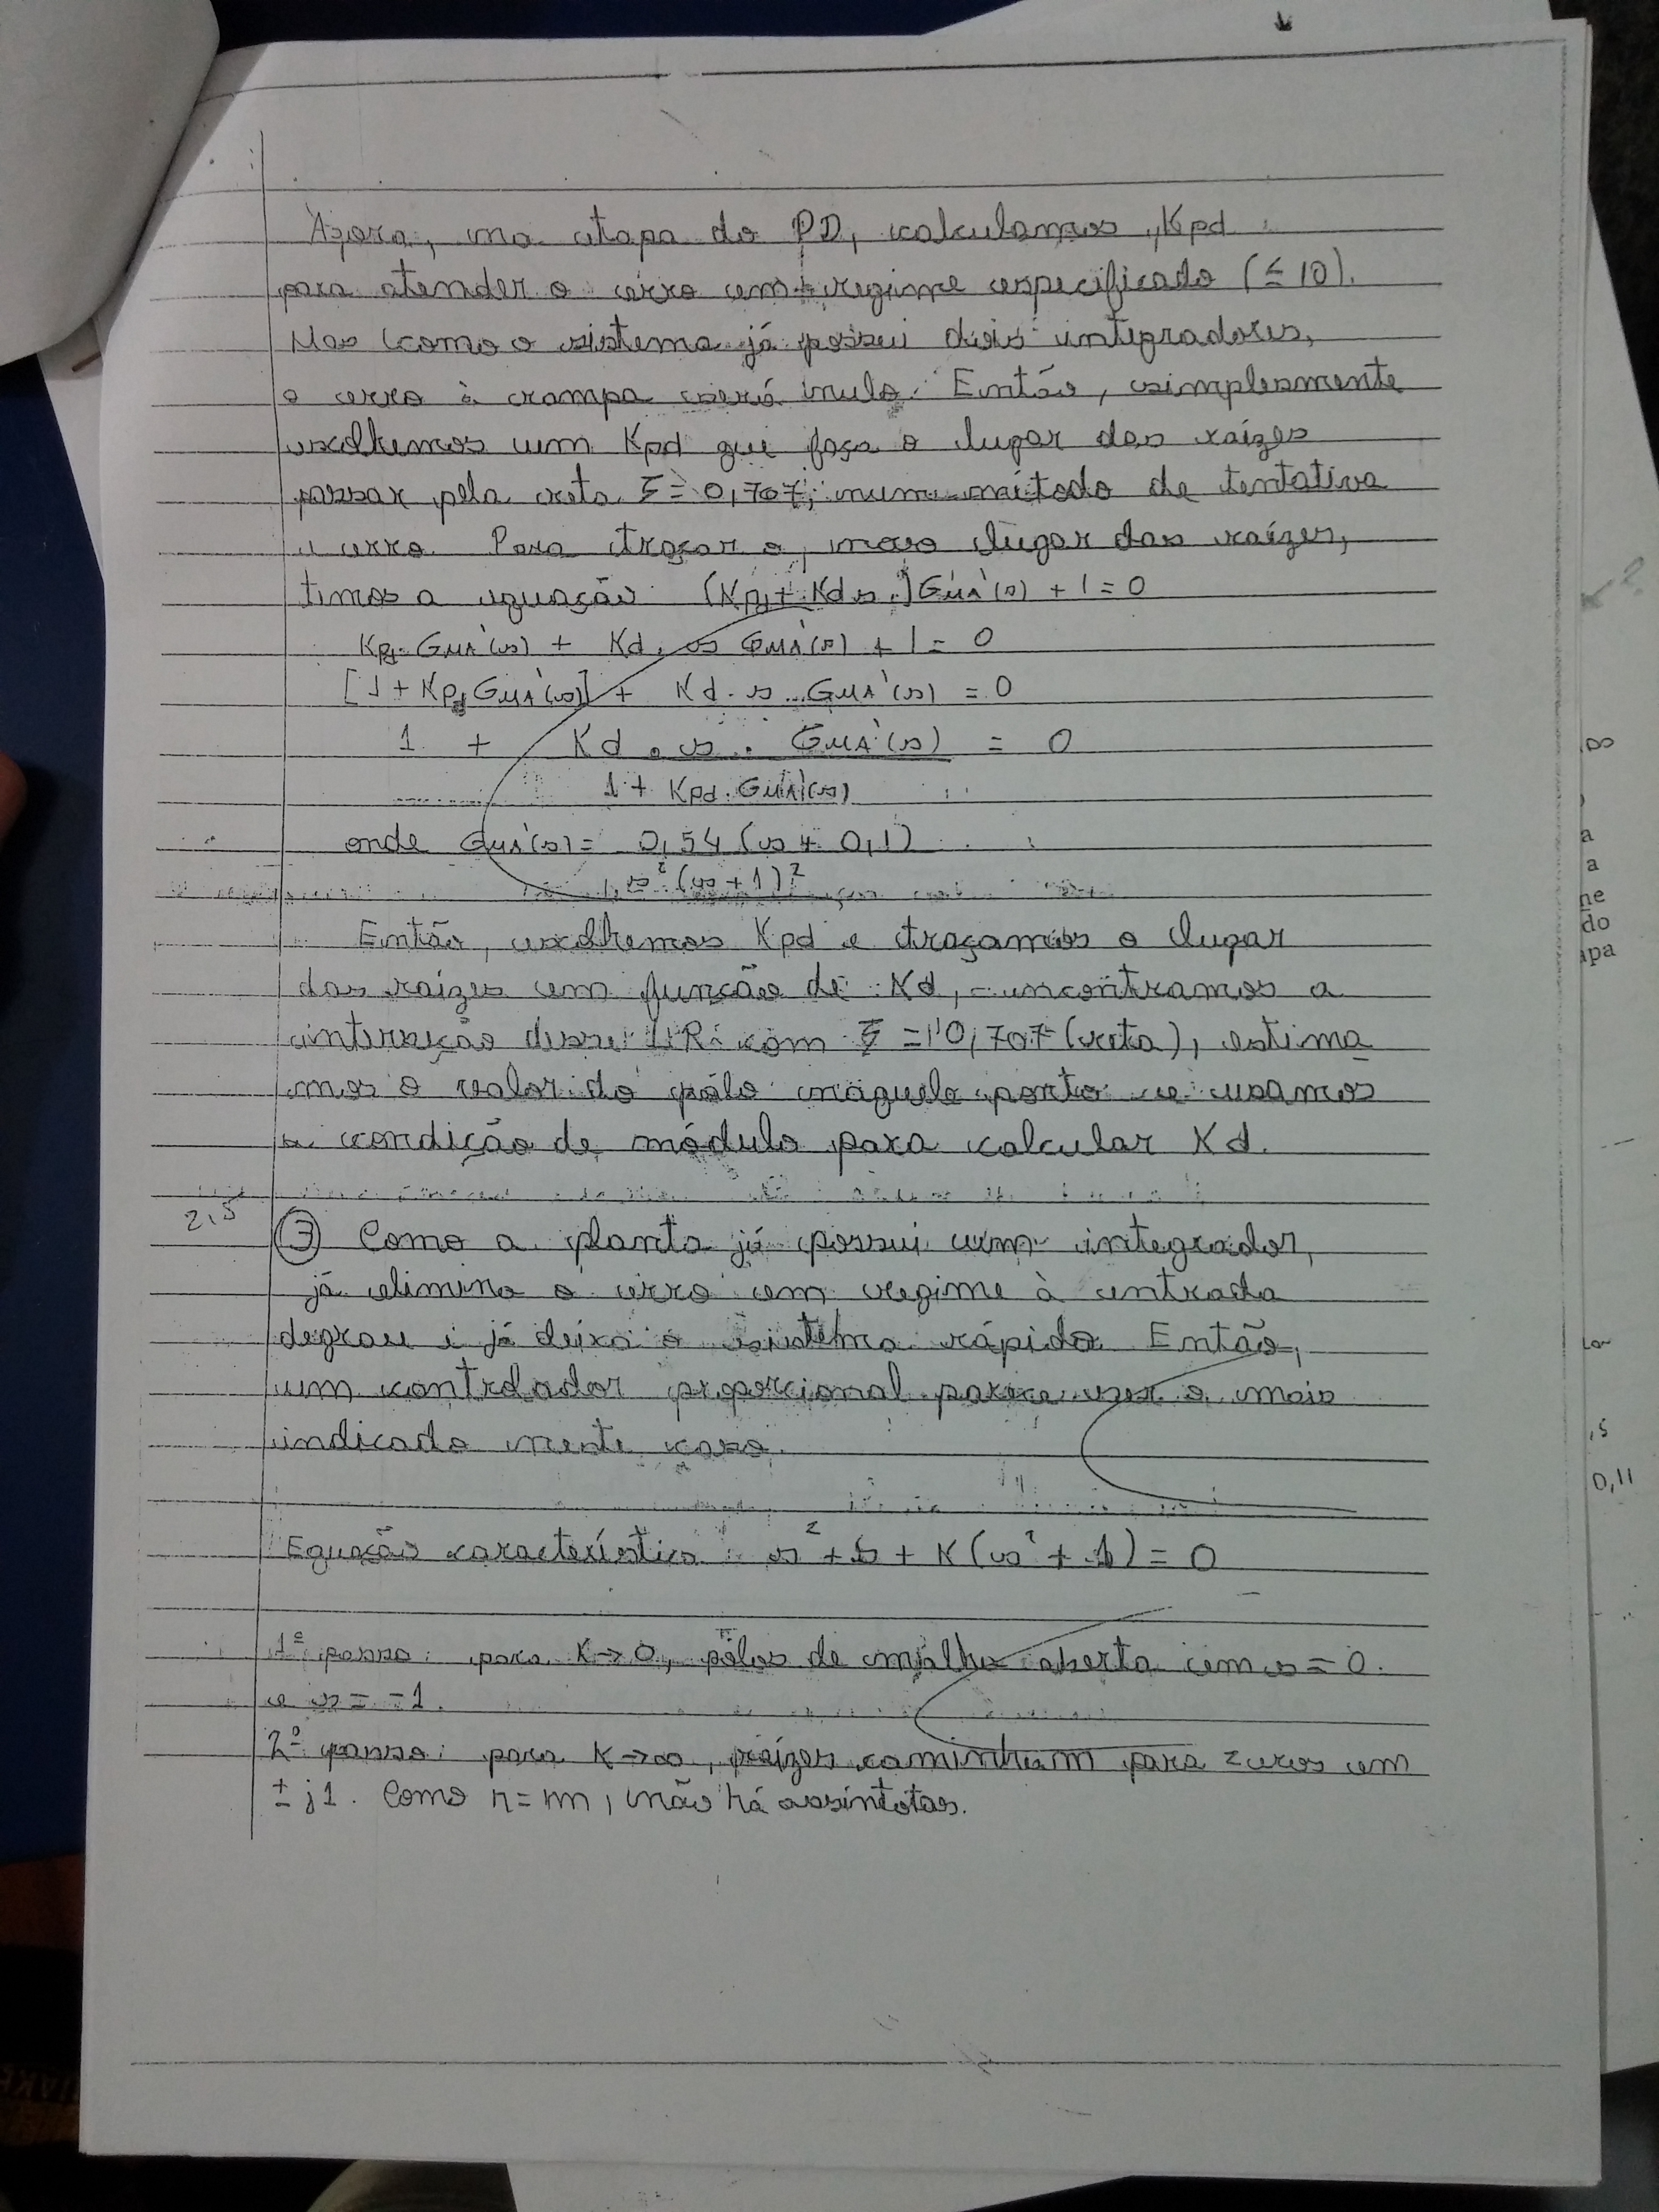 Agora, na etapa do PD, calculamos Kpd
para atender o erro em regime especificado (≤ 10).
Mas como o sistema já possui dois integradores,
o erro à rampa será nulo. Então, simplesmente
escolhemos um Kpd que faça o lugar das raízes
passar pela reta ξ = 0,707, num método de tentativa
e erro. Para traçar o novo lugar das raízes,
temos a equação (Kpd + Kd s.) GMA'(s) + 1 = 0
Kpd. GMA'(s) + Kd . s GMA'(s) + 1 = 0
[1 + Kpd GMA'(s)] + Kd . s . GMA'(s) = 0
1 + Kd . s . GMA'(s) = 0
1 + Kpd . GMA'(s)
onde GMA'(s) = 0,54 (s + 0,1)
s² (s + 1)²
Então, escolhemos Kpd e traçamos o lugar
das raízes em função de Kd, encontramos a
interseção desse LR com ξ = 0,707 (reta), estima
mos o valor do pólo naquele ponto e usamos
a condição de módulo para calcular Kd.
2,5
③ Como a planta já possui um integrador,
já elimina o erro em regime à entrada
degrau e já deixa o sistema rápido. Então,
um controlador proporcional parece ser o mais
indicado neste caso.
Equação característica: s² + s + K(s² + 1) = 0
1º passo: para K→0, pólos de malha aberta em s = 0.
e s = -1.
2º passo: para K→∞, raízes caminham para zeros em
± j1. Como n = m, não há assíntotas.
?
∞
a
a
ne
do
apa
,5
0,11